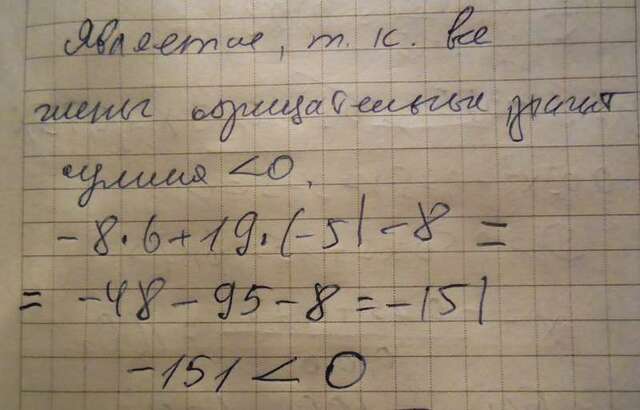 Является, т. к. все
члены отрицательные значит
сумма <0.
-8·6+19·(-5)-8 =
= -48-95-8=-151
-151<0